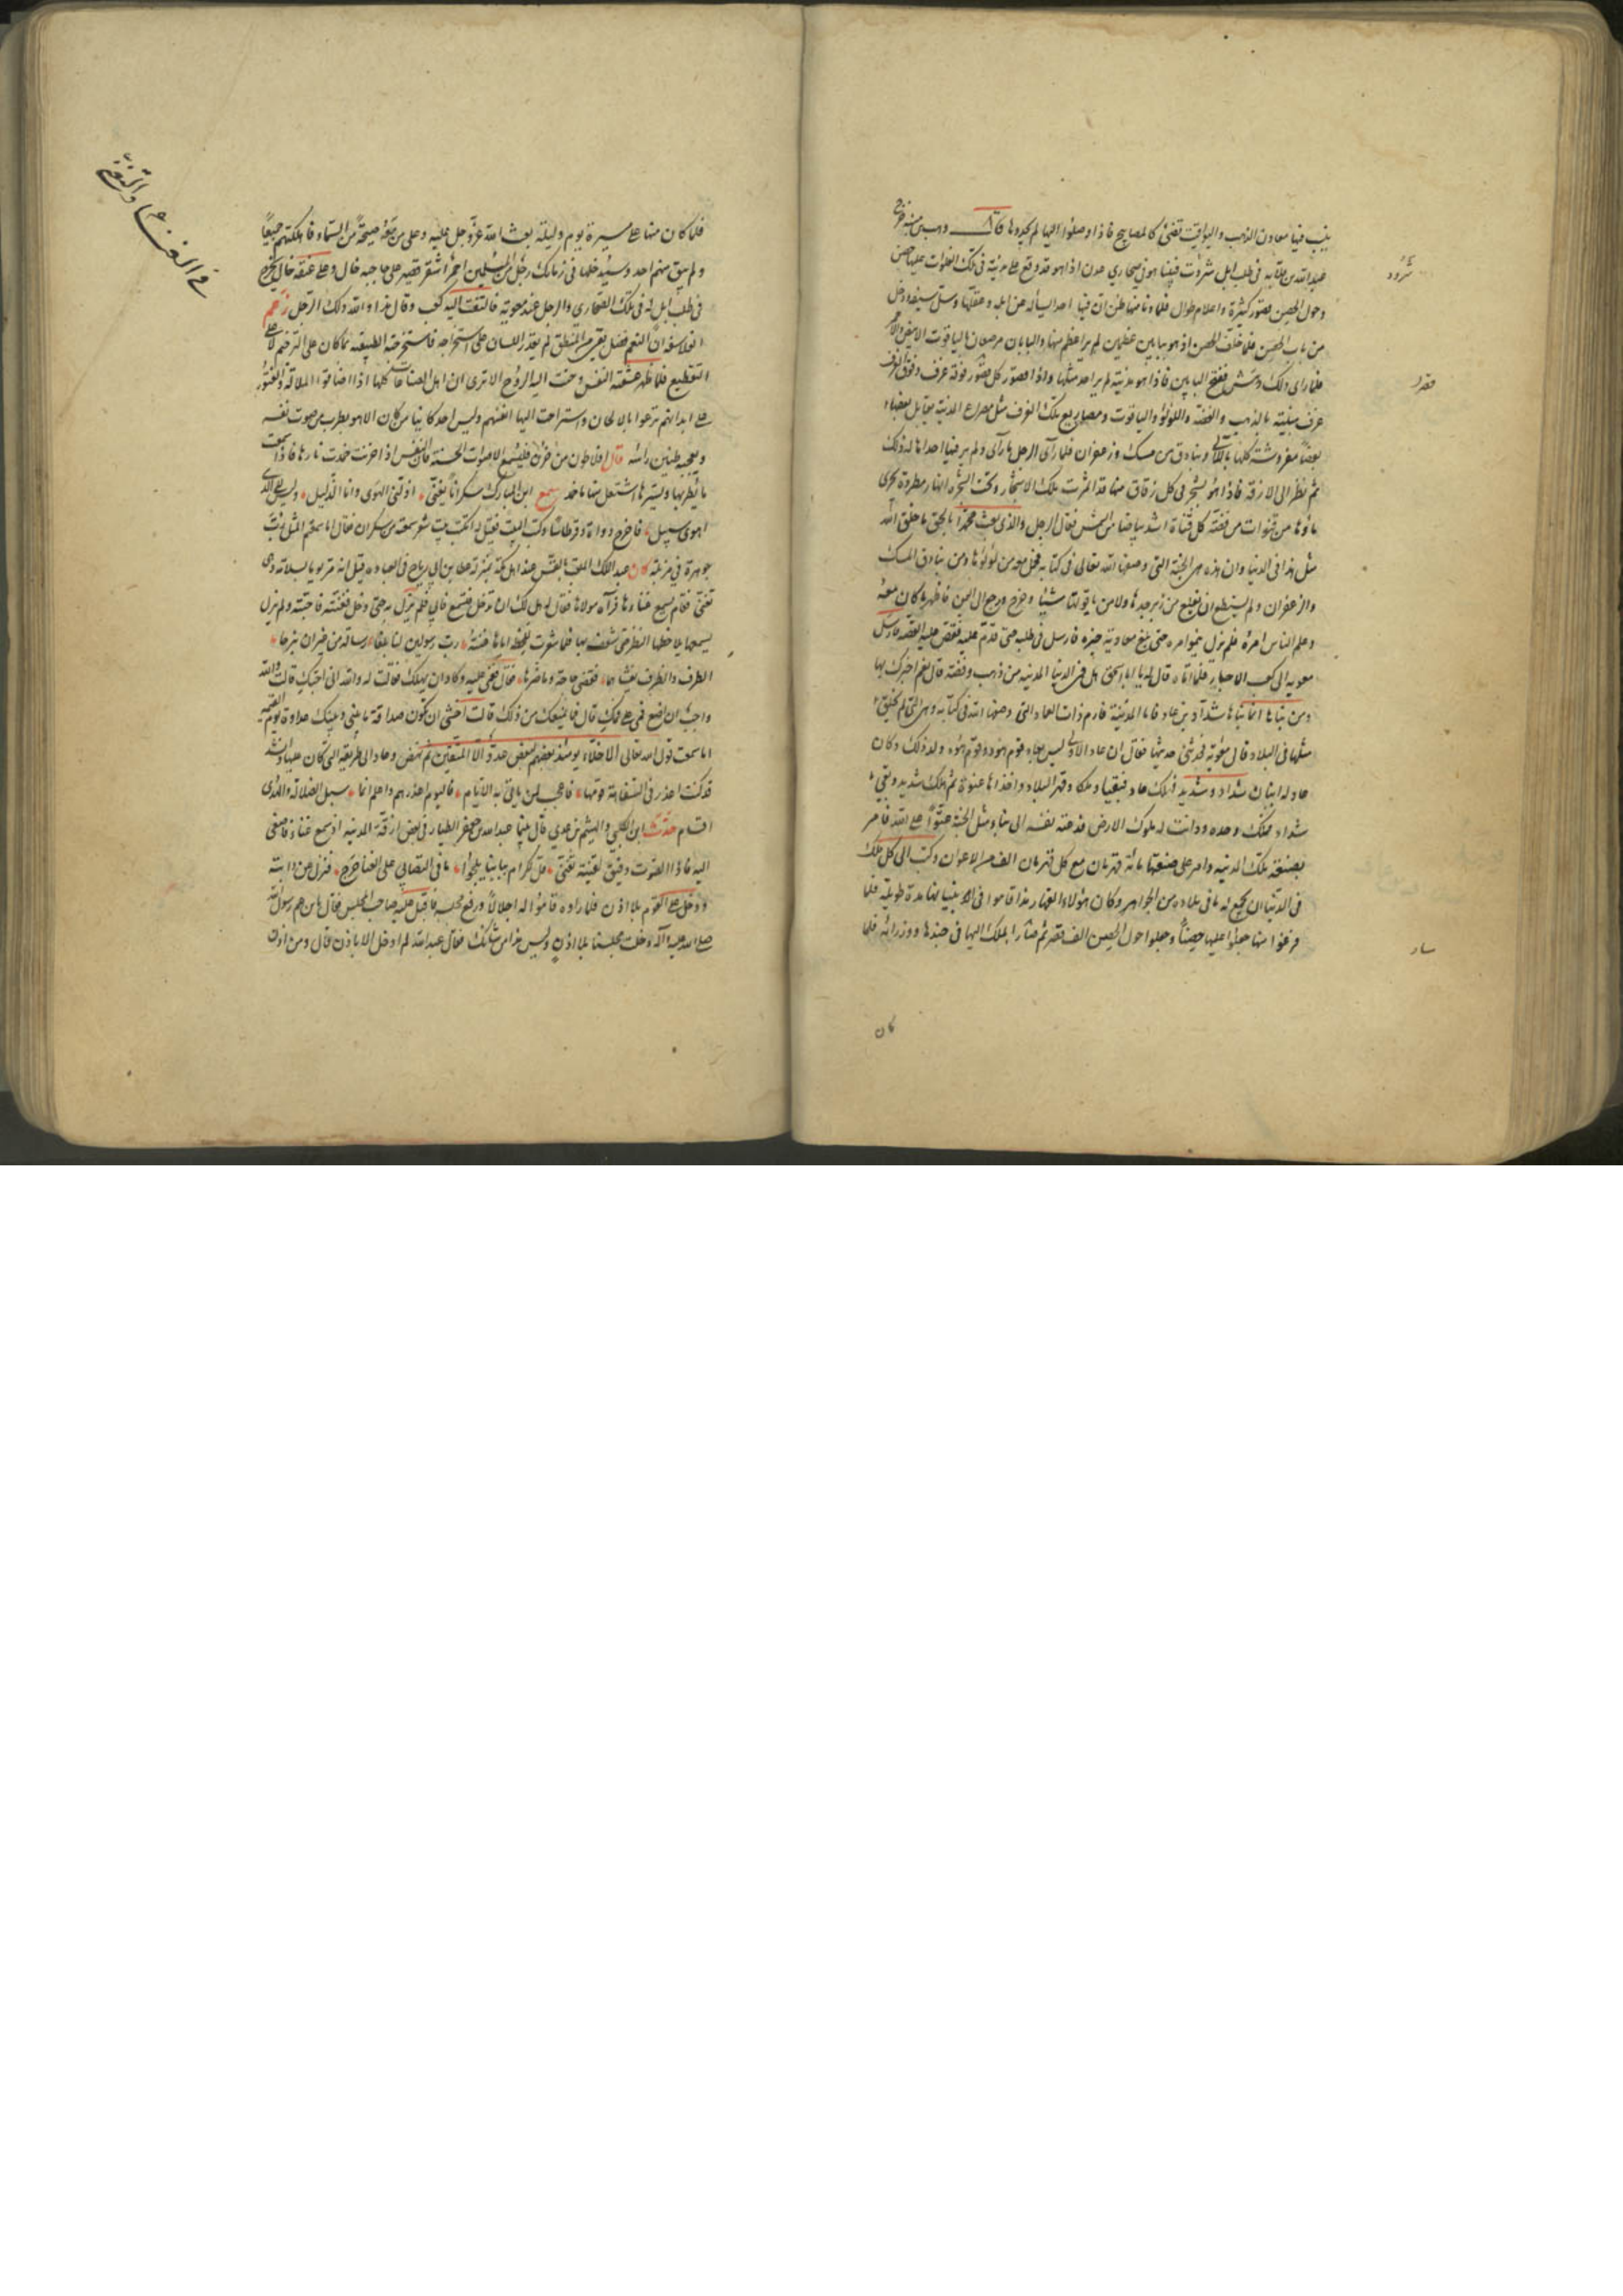 ينبت فيها معادن الذهب واليواقيت تضئ كالمصابيح فاذا وصلوا اليها لم يجدوها قال وهب بن منبه خرج
عبد الله بن قلابه فى طلب ابل شردت فبينا هو فى صحارى عدن اذا هو قد وقع على مدينة فى تلك الفلوات عليها حصن
وحول الحصن قصور كثيرة واعلام طوال فلما دنا منها ظن ان فيها احدا يسأله عن ابله وعقلها وسل سيفه ودخل
من باب الحصن فلما خلف الحصن اذ هو ببابين عظيمين لم ير اعظم منهما والبابان مرصعان بالياقوت الابيض والاحمر
فلما راى ذلك دهش ففتح البابين فاذا هو بمدينة لم ير احد مثلها واذا قصور كل قصر فوقه غرف وفوق الغرف
غرف مبنية بالذهب والفضة واللؤلؤ والياقوت ومصاريع تلك الغرف مثل مصراع المدينة يقابل بعضها
بعضا مفروشة كلها باللآلى وبنادق من مسك وزعفران فلما رآى الرجل ما رآى ولم ير فيها احدا هاله ذلك
ثم نظر الى الازقة فاذا هو بشجر فى كل زقاق منها قد اثمرت تلك الاشجار وتحت الشجرة انهار مطردة تجرى
ماؤها من قنوات من فضة كل قناة اشد بياضا من الشمس فقال الرجل والذى بعث محمدا بالحق ما خلق الله
مثل هذا فى الدنيا وان هذه هى الجنة التى وصفها الله تعالى فى كتابه فحمل معه من لؤلؤها ومن بنادق المسك
والزعفران ولم يستطع ان يقلع من زبرجدها ولا من ياقوتها شيئا وخرج ورجع الى اليمن فاظهر ما كان معه
وعلم الناس امره فلم يزل ينمو امره حتى بلغ معاوية خبره فارسل فى طلبه حتى قدم عليه فقص عليه القصة فارسل
معوية الى كعب الاحبار فلما اتاه قال له يا ابا اسحق هل فى الدنيا مدينة من ذهب وفضة قال نعم اخبرك بها
ومن بناها انما بناها شداد بن عاد فاما المدينة فارم ذات العماد التى وصفها الله فى كتابه وهى التى لم يخلق
مثلها فى البلاد قال معوية فحدثنى حديثها فقال ان عاد الاولى ليس بعاد قوم هود وقوم هود ولد ذلك وكان
عاد له ابنان شداد وشديد فهلك عاد فبقيا وملكا وقهرا البلاد واخذاها عنوة ثم هلك شديد وبقى
شداد فملك وحده ودانت له ملوك الارض فدعته نفسه الى بناء مثل الجنة عتوا على الله فامر
بصنعة تلك المدينة وامر على صنعتها مائة قهرمان مع كل قهرمان الف من الاعوان وكتب الى كل ملك
فى الدنيا ان يجمع له ما فى بلاده من الجواهر وكان هؤلاء القهارمة اقاموا فى بنيانها مدة طويلة فلما
فرغوا منها جعلوا عليها حصنا وجعلوا حول الحصن الف قصر ثم سار الملك اليها فى جندها ووزرائه فلما
شرود
قصر
سار
كان
فى الغناء والنغم
فلما كان منها على مسيرة يوم وليلة بعث الله عز وجل عليه وعلى من معه صيحة من السماء فاهلكتهم جميعا
ولم يبق منهم احد وسيدخلها فى زمانك رجل من المسلمين احمر اشقر قصير على حاجبه خال وعلى عنقه خال يخرج
فى طلب ابل له فى تلك الصحارى والرجل عند معوية فالتفت اليه كعب وقال هذا والله ذلك الرجل زعم
الفلاسفة ان النغم فضل بقى من المنطق لم يقدر اللسان على استخراجه فاستخرجته الطبيعة بالالحان على الترجيع لا على
التقطيع فلما ظهر عشقته النفس وحنت اليه الروح الا ترى ان اهل الصناعات كلها اذا خافوا الملالة والفتور
على ابدانهم ترنموا بالالحان واستراحت اليها انفسهم وليس احد كائنا من كان الا هو يطرب من صوت نفسه
ويعجبه طنين راسه قال افلاطون من حزن فليسمع الاصوات الحسنة فان النفس اذا حزنت خمدت نارها فاذا سمعت
ما يطربها ويسرها اشتعل منها ما خمد سمع ابن المبارك سكرانا يغنى اذلنى الهوى وانا الذليل وليس الى الذى
اهوى سبيل فاخرج دواة وقرطاسا وكتب البيت فقيل له اتكتب بيت شعر سمعته من سكران فقال اما سمعتم المثل رب
جوهرة فى مزبلة كان عبد الملك الملقب بالقس عند اهل مكة بمنزلة عطا بن ابى رباح فى العبادة قيل انه مر يوما بسلامة وهى
تغنى فقام يسمع غناءها فرآه مولاها فقال له هل لك ان تدخل فتسمع فابى فلم يزل به حتى دخل فغنته فاعجبته ولم يزل
يسمعها يلاحظها النظر حتى شغف بها فلما شعرت بلحظه اياها غنته رب رسولين لنا بلغا رسالة من قبل ان يبرحا
الطرف والطرف بعثناهما فقضيا حاجة وما صرحا فقال فغشى عليه وكاد ان يهلك فقالت له والله انى احبك قال وانا والله
واحب ان اضع فمى على فمك قال فما يمنعك من ذلك قالت اخشى ان تكون صداقة ما بينى وبينك عداوة يوم القيمة
اما سمعت قول الله تعالى الاخلاء يومئذ بعضهم لبعض عدو الا المتقين ثم نهض وعاد الى طريقته التى كان عليها وانشد
قد كنت اعذر فى السفاهة اهلها فاعجب لمن ياتى به الايام فاليوم اعذرهم واعلم انما سبل الضلالة والهدى
اقسام حدث ابن الكلبى والهيثم بن عدى قال بينما عبد الله بن جعفر الطيار فى بعض ازقة المدينة اذ سمع غناء فاصغى
اليه فاذا الصوت رقيق لقينة تغنى قل لكرام ببابنا يلجوا ما فى التصابى على الفتى حرج فنزل عن دابته
ودخل على القوم بلا اذن فلما راوه قاموا له اجلالا ورفع مجلسه فاقبل عليه صاحب المجلس فقال يا ابن عم رسول الله
صلى الله عليه وآله دخلت مجلسنا بلا اذن وليس هذا من شانك فقال عبد الله لم ادخل الا باذن قال ومن اذن